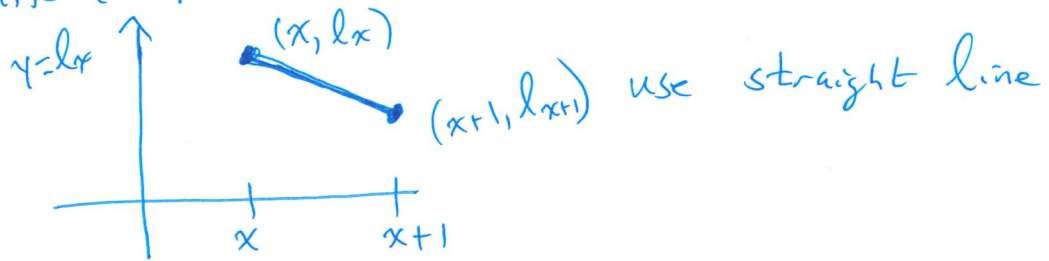 y=lx
(x, lx)
(x+1, lx+1) use straight line
x
x+1